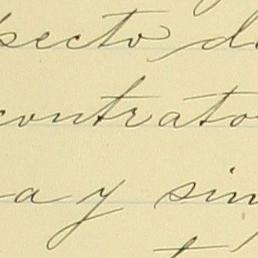 specto d
contrato
a y sin